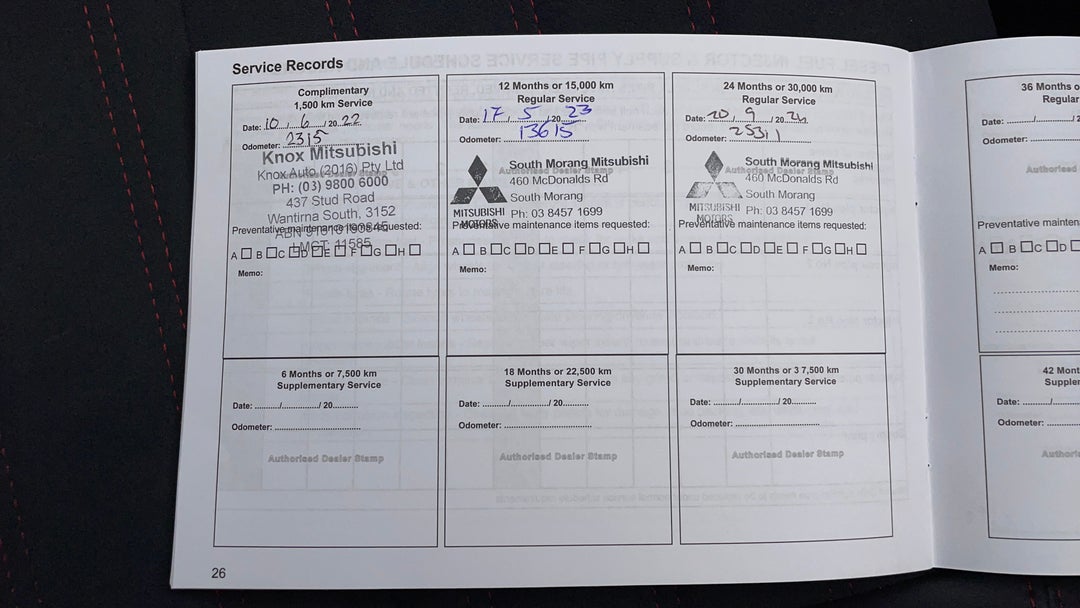 Service Records
Complimentary
1,500 km Service
Date: 10 / 6 / 20 22
Odometer: 2315
Knox Mitsubishi
Knox Auto (2016) Pty Ltd
PH: (03) 9800 6000
437 Stud Road
Wantirna South, 3152
Preventative maintenance items requested:
LMCT: 11585
A B C D E F G H
Memo:
12 Months or 15,000 km
Regular Service
Date: 17 / 5 / 20 23
Odometer: 13615
Authorised Dealer Stamp
South Morang Mitsubishi
460 McDonalds Rd
South Morang
MITSUBISHI MOTORS
Ph: 03 8457 1699
Preventative maintenance items requested:
A B C D E F G H
Memo:
24 Months or 30,000 km
Regular Service
Date: 20 / 9 / 20 24
Odometer: 25311
Authorised Dealer Stamp
South Morang Mitsubishi
460 McDonalds Rd
South Morang
MITSUBISHI MOTORS
Ph: 03 8457 1699
Preventative maintenance items requested:
A B C D E F G H
Memo:
36 Months or
Regular
Date:
Odometer:
Authorised
Preventative
A B C D
Memo:
6 Months or 7,500 km
Supplementary Service
Date: ........../................/ 20..........
Odometer: ...................................
Authorised Dealer Stamp
18 Months or 22,500 km
Supplementary Service
Date: ........../................/ 20..........
Odometer: ...................................
Authorised Dealer Stamp
30 Months or 3 7,500 km
Supplementary Service
Date: ........../................/ 20..........
Odometer: ...................................
Authorised Dealer Stamp
42 Mont
Supple
Date:
Odometer:
Authori
26